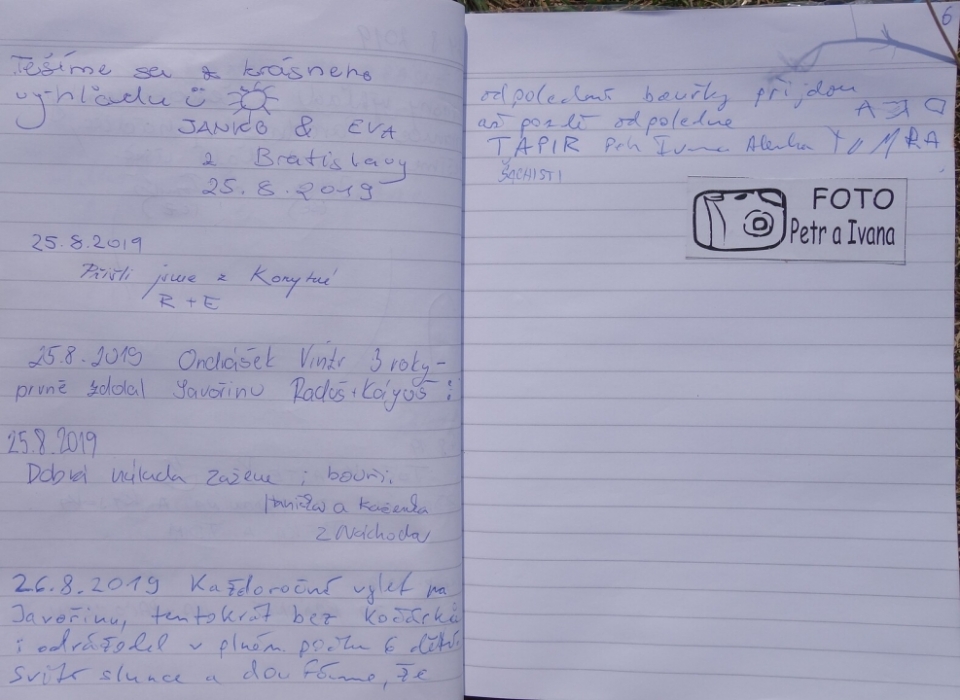 Těšíme sa z krásneho
výhľadu
JANKO & EVA
z Bratislavy
25.8.2019
25.8.2019
Přišli jsme z Korytné
R + E
25.8.2019 Ondrášek Vintr 3 roky -
prvně zdolal Javořinu Radůš + Kágoš
25.8.2019
Dobrá nálada zažene i bouři.
a Kačenka
z Náchoda
26.8.2019 Každoroční výlet na
Javořinu, tentokrát bez kočárků
i odrážedel v plném počtu 6 dětí.
Svítí slunce a doufáme, že
6
odpolední bouřky přijdou
až pozdě odpoledne
TAPIR Petr Ivana Alenka
ŠACHISTI
FOTO
Petr a Ivana